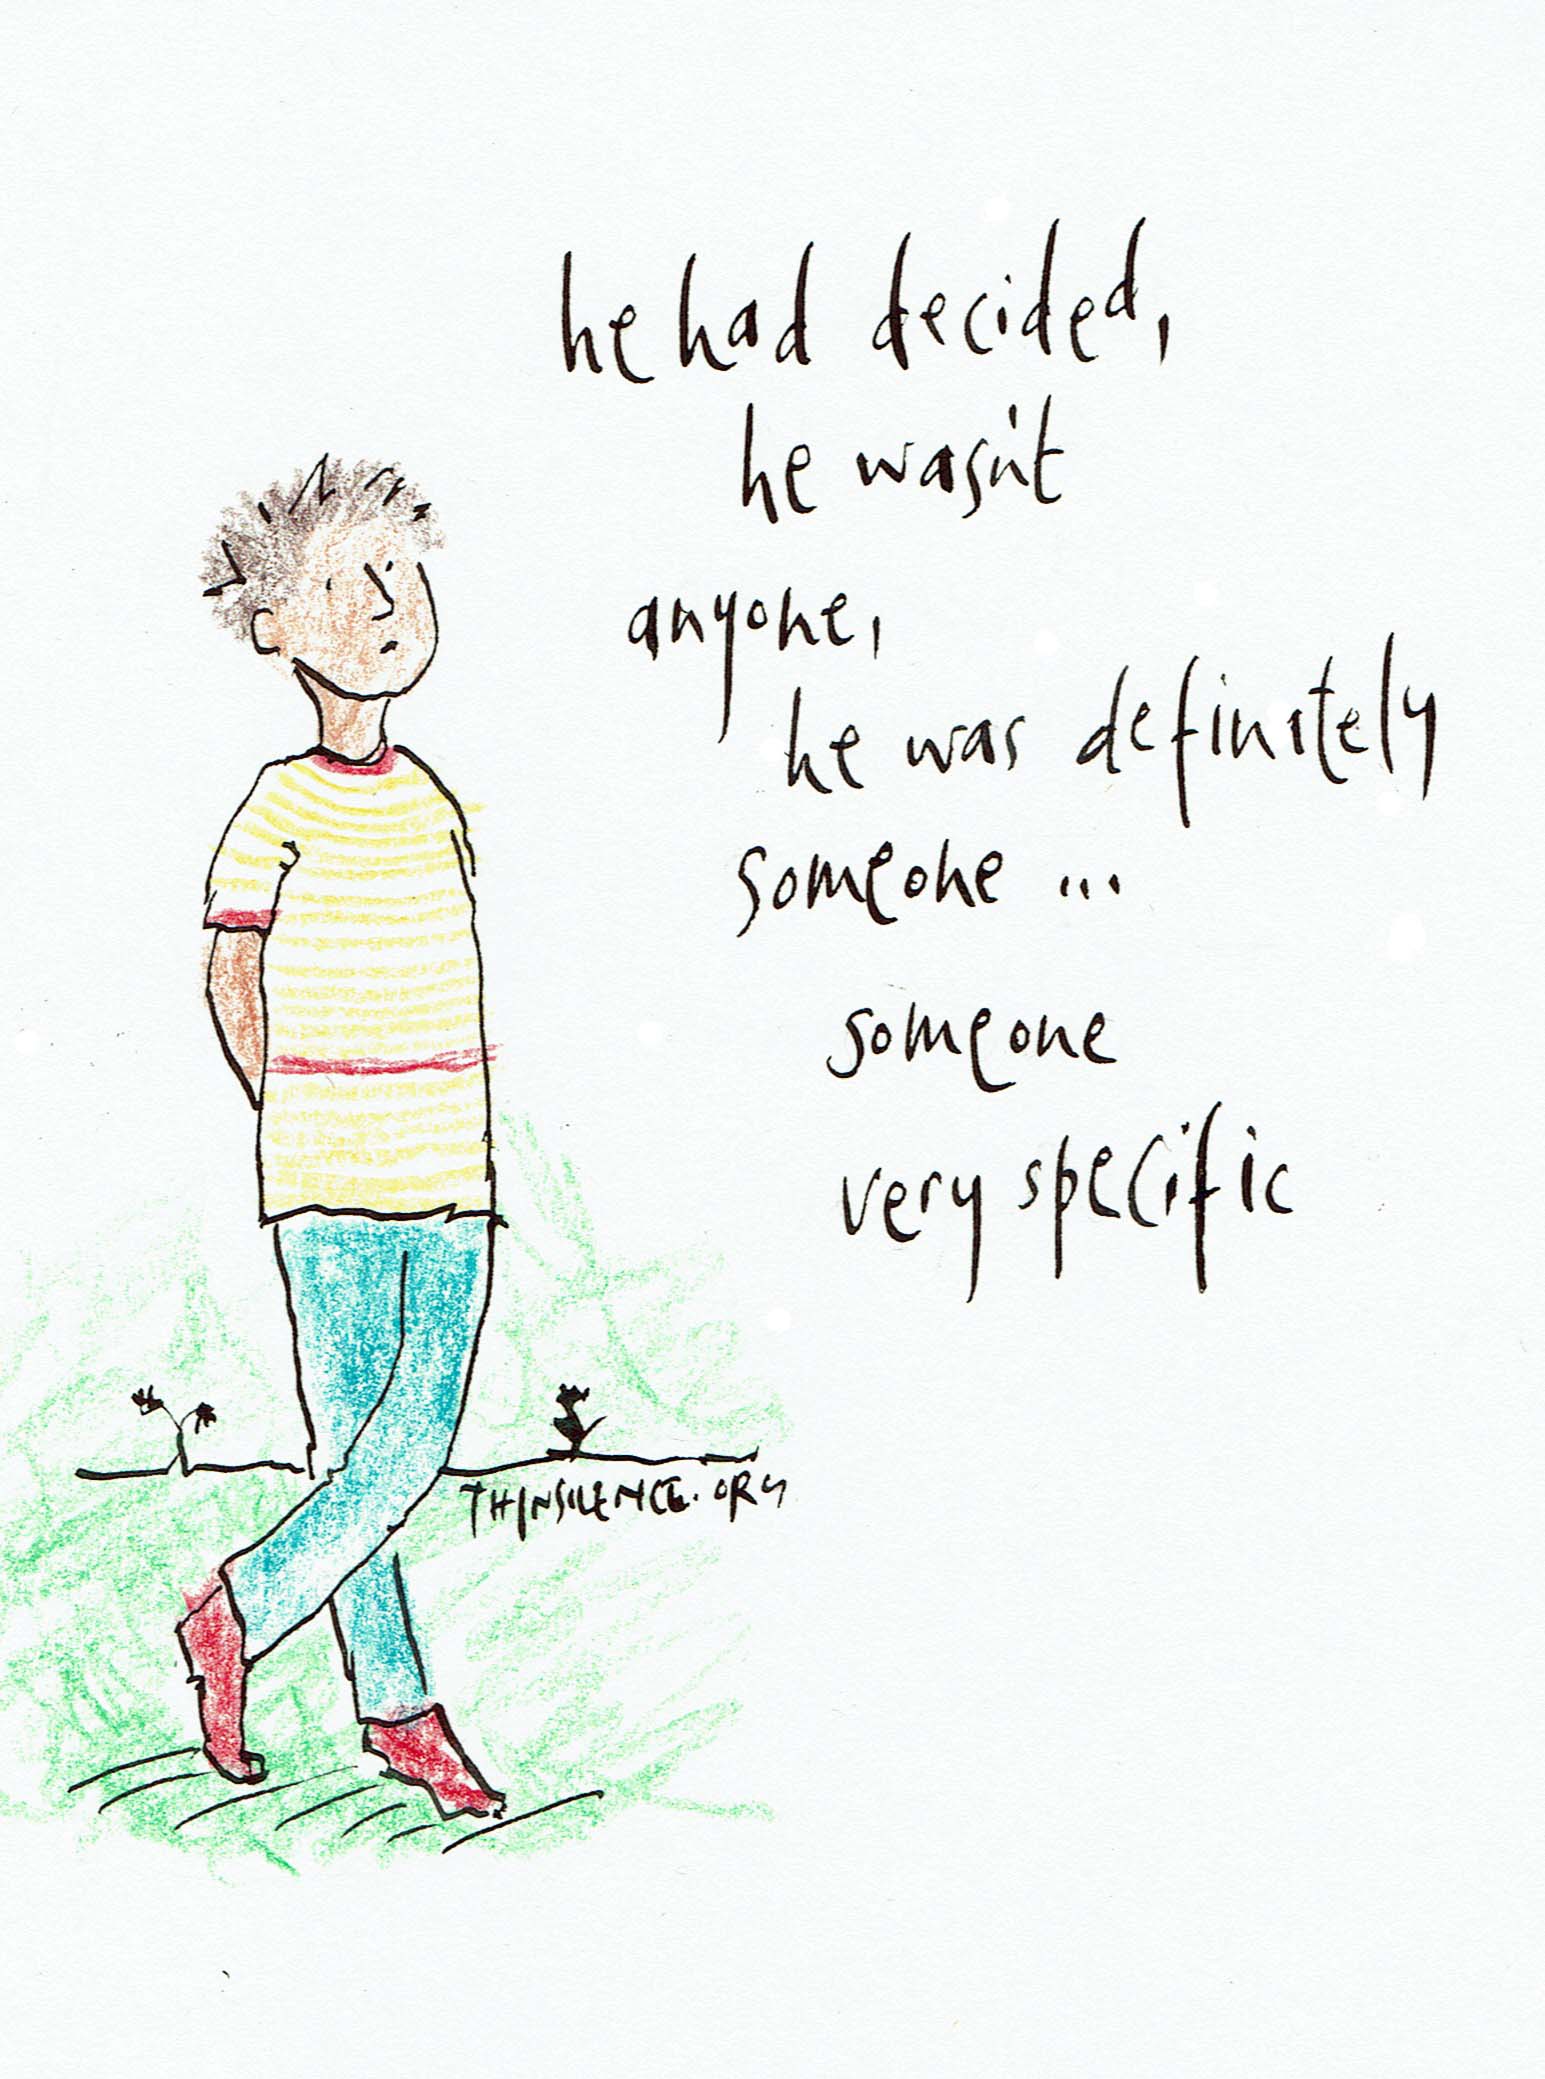 he had decided,
he wasn't
anyone,
he was definitely
someone ...
someone
very specific
THINSILENCE.ORG